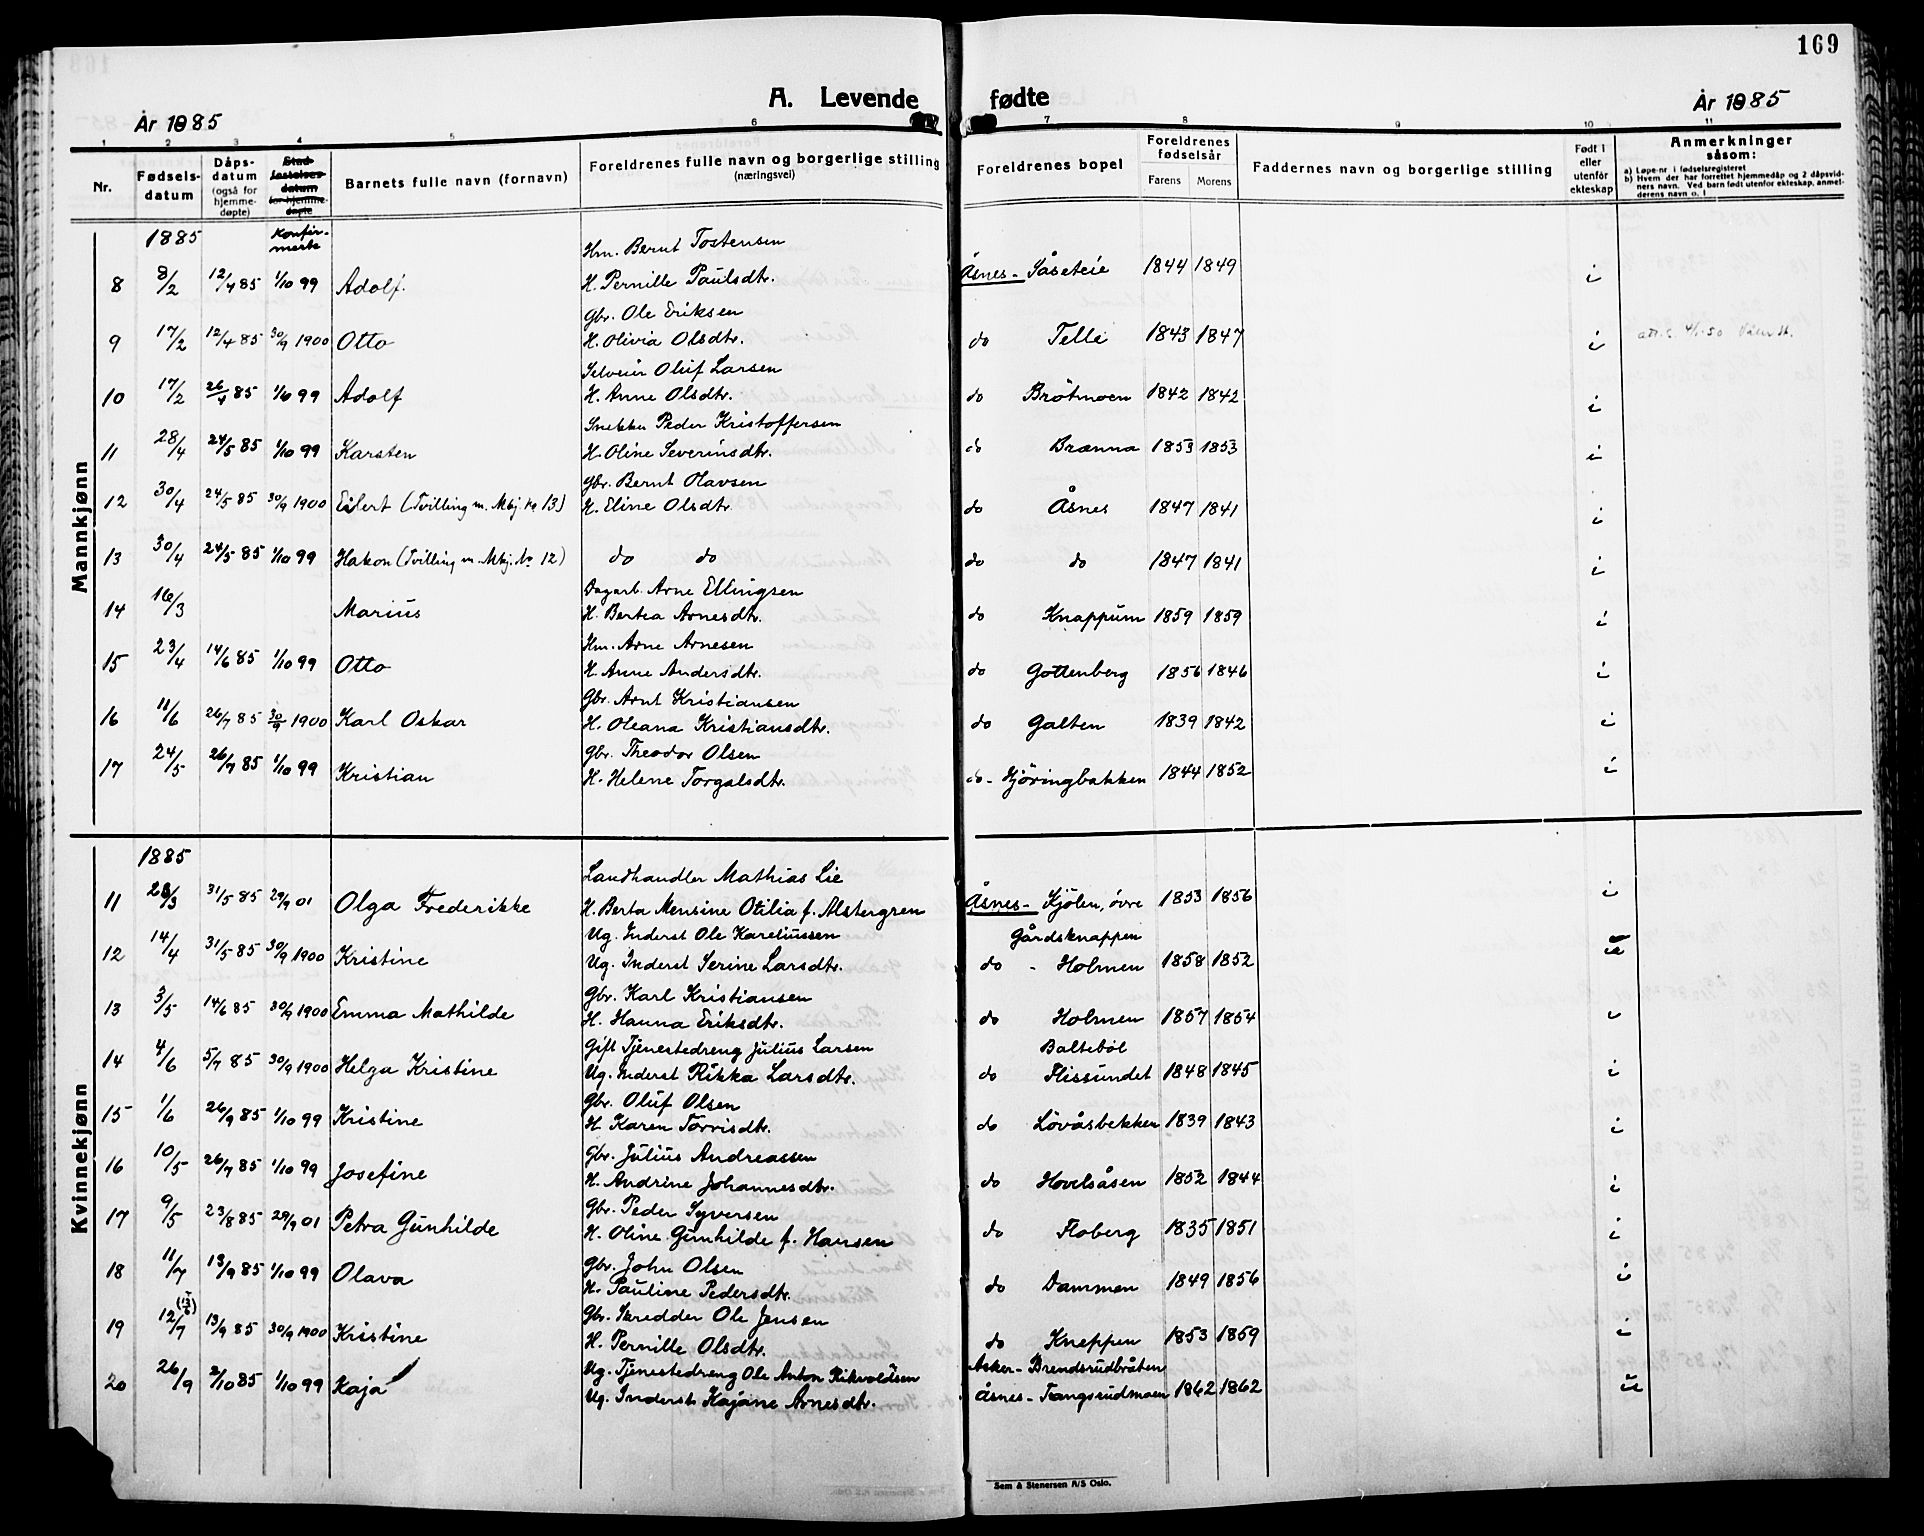 169
A. Levende fødte
År 1885
År 1885
1 2 3 4 5 6 7 8 9 10 11
Nr.
Fødselsdatum
Dåpsdatum (også for hjemmedøpte)
Stadfestelsesdatum for hjemmedøpte
Barnets fulle navn (fornavn)
Foreldrenes fulle navn og borgerlige stilling (næringsvei)
Foreldrenes bopel
Foreldrenes fødselsår
Farens Morens
Faddernes navn og borgerlige stilling
Født i eller utenfor ekteskap
Anmerkninger såsom:
a) Løpe-nr i fødselsregisteret
b) Hvem der har forrettet hjemmedåp og 2 dåpsvidners navn. Ved barn født utenfor ekteskap, anmelderens navn o. l
Mannkjønn
1885 Konfirmerte
Hm. Bernt Tostensen
8 8/2 12/4 85 1/10 99 Adolf. H. Pernille Paulsdtr. Åsnes - Såseteie 1844 1849 i
Gbr. Ole Eriksen
9 17/2 12/4 85 30/9 1900 Otto H. Olivia Olsdtr. do Telle 1843 1847 i
Selveier Oluf Larsen
10 17/2 26/4 85 1/10 99 Adolf H. Anne Olsdtr. do Bråtmoen 1842 1842 i
Snekker Peder Kristoffersen
11 28/4 24/5 85 1/10 99 Karsten H. Oline Severinsdtr. do Brænna 1853 1853 i
Gbr. Bernt Olavsen
12 30/4 24/5 85 30/9 1900 Eilert (Tvilling m. Mkj. No 13) H. Eline Olsdtr. do Åsnes 1847 1841 i
13 30/4 24/5 85 1/10 99 Hakon (Tvilling m. Mkj. No 12) do do do do 1847 1841 i
Dagarb. Arne Ellingsen
14 16/3 Marius H. Bertea Arnesdtr. do Knappum 1859 1859 i
Hm. Arne Arnesen
15 23/4 14/6 85 1/10 99 Otto H. Anne Andersdtr. do Gottenberg 1856 1846 i
Gbr. Arnt Kristiansen
16 11/6 26/7 85 30/9 1900 Karl Oskar H. Oleana Kristiansdtr. do Galten 1839 1842 i
Gbr. Theodor Olsen
17 24/5 26/7 85 1/10 99 Kristian H. Helene Torgalsdtr. do - Hjöringbakken 1844 1852 i
Kvinnekjønn
1885
Landhandler Mathias Lie
11 23/3 31/5 85 29/9 01 Olga Frederikke H. Berta Mensine Otilia f. Alstergren Åsnes - Kjölen, övre 1853 1856 i
Ug. Inderst Ole Kareliussen Gårdsknappen
12 14/4 31/5 85 30/9 1900 Kristine Ug. Inderst Serine Larsdtr. do - Holmen 1858 1852 u
Gbr. Karl Kristiansen
13 3/5 14/6 85 30/9 1900 Emma Mathilde H. Hanna Eriksdtr. do Holmen 1857 1854 i
Gift Tjenestedreng Julius Larsen Balteböl
14 4/6 5/7 85 30/9 1900 Helga Kristine Ug. Inderst Rikka Larsdtr. do Flissundet 1848 1845 i
Gbr. Oluf Olsen
15 1/6 26/9 85 1/10 99 Kristine H. Karen Torrisdtr. do Lövåsbekken 1839 1843 i
Gbr. Julius Andreassen
16 10/5 26/7 85 1/10 99 Josefine H. Andrine Johannesdtr. do Hovelsåsen 1852 1844 i
Gbr. Peder Syversen
17 9/5 23/8 85 29/9 01 Petra Gunhilde H. Oline Gunhilde f. Hansen do Floberg 1835 1851 i
Gbr. John Olsen
18 11/7 13/9 85 1/10 99 Olava H. Pauline Pedersdtr. do Dammen 1849 1856 i
Gbr. Skredder Ole Jensen
19 12/7 13/9 85 30/9 1900 Kristine H. Pernille Olsdtr. do Kneppen 1853 1859 i
Ug. Tjenestedreng Ole Anton Rikvoldsen Asker - Brendsrudbråten
20 26/9 2/10 85 1/10 99 Kaja Ug. Inderst Kajane Arnesdtr. Åsnes - Tangsrudmoen 1862 1862 u
Sem & Stenersen A/S Oslo.